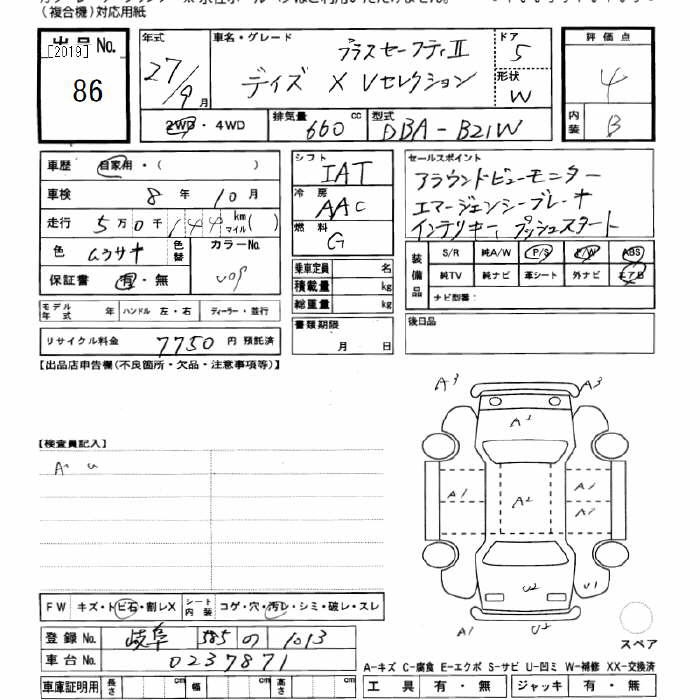 (複合機)対応用紙
出品No.
[2019]
86
年式
27/9月
車名・グレード
プラスセーフティII
デイズ X Vセレクション
ドア
5
形状
W
2WD・4WD
排気量 660 cc
型式 DBA-B21W
評価点
4
内装 B
車歴 自家用・( )
車検 8年10月
走行 5万0千144km マイル( )
色 ムラサキ 色替
カラーNo.
保証書 有・無
モデル年式 年 ハンドル 左・右 ディーラー・並行
リサイクル料金 7750円 預託済
シフト IAT
冷房 AAC
燃料 G
乗車定員 名
積載量 kg
総重量 kg
書類期限
月 日
セールスポイント
アラウンドビューモニター
エマージェンシーブレーキ
インテリキー プッシュスタート
装備品
S/R 純A/W P/S P/W ABS
純TV 純ナビ 革シート 外ナビ エアB
ナビ型番:
後日品
【出品店申告欄(不良箇所・欠品・注意事項等)】
【検査員記入】
A. u
A3 A3
A1
A1 A2 A1
A2
U2 U1
A1 U2
スペア
FW キズ・トビ石・割レX シート内装 コゲ・穴・汚レ・シミ・破レ・スレ
登録No. 岐阜 585 の 1013
車台No. 0237871
車庫証明用 長さ cm 幅 cm 高さ cm
A-キズ C-腐食 E-エクボ S-サビ U-凹ミ W-補修 XX-交換済
工具 有・無 ジャッキ 有・無